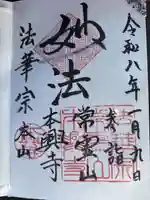 令和八年一月九日
奉詣
常霊山
妙法
本興寺
法華宗
本山